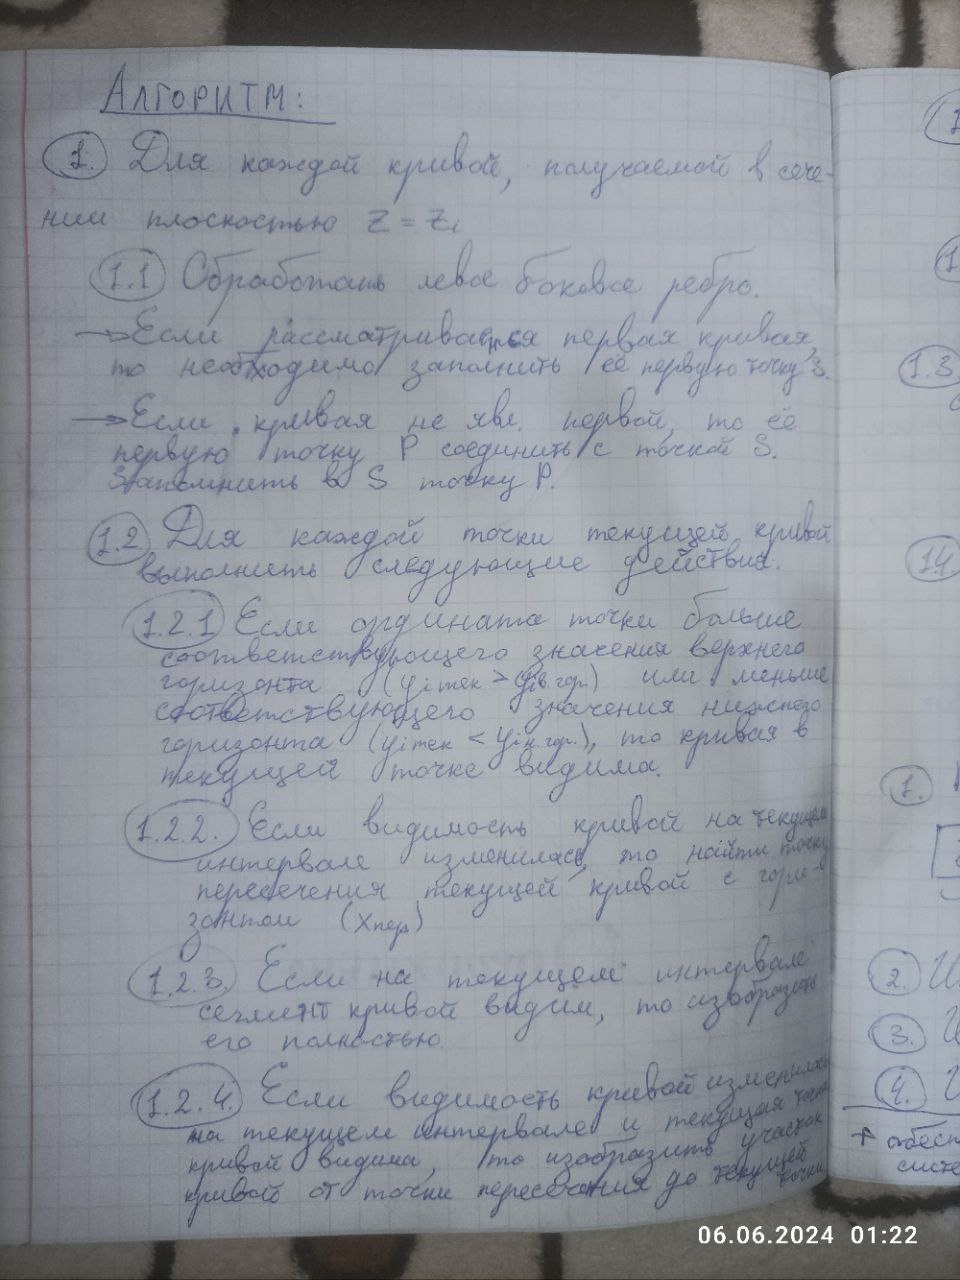 Алгоритм:
1. Для каждой кривой, получаемой в сече-
нии плоскостью z = zi
1.1 Обработать левое боковое ребро.
→ Если рассматривается первая кривая,
то необходимо заполнить её первую точку S.
→ Если кривая не явл. первой, то её
первую точку P соединить с точкой S.
Запомнить в S точку P.
1.2 Для каждой точки текущей кривой
выполнить следующие действия.
1.2.1 Если ордината точки больше
соответствующего значения верхнего
горизонта (yi тек > yi в.гор.) или меньше
соответствующего значения нижнего
горизонта (yi тек < yi н.гор.), то кривая в
текущей точке видима.
1.2.2. Если видимость кривой на текущем
интервале изменилась, то найти точку
пересечения текущей кривой с гори-
зонтом (xпер)
1.2.3. Если на текущем интервале
сегмент кривой видим, то изобразить
его полностью.
1.2.4. Если видимость кривой изменилась
на текущем интервале и текущая точка
кривой видима, то изобразить участок
кривой от точки пересечения до текущей точки
1.3
1.4
1.
2.
3.
4.
+ обесп
систе
06.06.2024 01:22